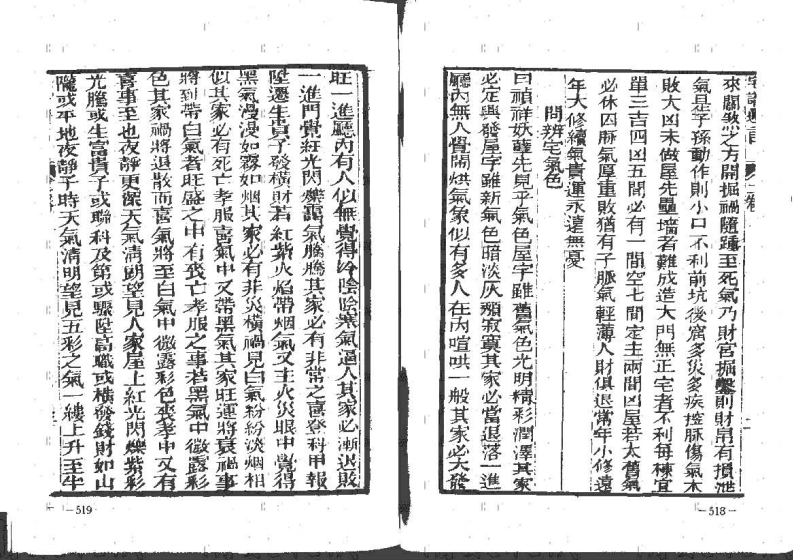 來關煞之方開掘禍隨踵至死氣乃財宮掘鑿則財帛有損泄
氣是子孫動作則小口不利前坑後窩多災多疾挖脉傷氣木
敗大凶未做屋先壘墻者難成造大門無正宅者不利每棟宜
單三吉四凶五間必有一間空七間定主兩間凶屋若太舊氣
必休囚脉氣厚重敗猶有子脈氣輕薄人財俱退常年小修遠
年大修續氣貴運永遠無憂
問辨宅氣色
曰禎祥妖孽先見乎氣色屋宇雖舊氣色光明精彩潤澤其家
必定興發屋宇雖新氣色暗淡灰頹寂寞其家必當退落一進
廳內無人覺鬧烘氣象似有多人在內喧哄一般其家必大發
旺一進廳內有人似無覺得冷陰陰寒氣逼人其家必漸退敗
一進門覺紅光閃爍靄氣騰騰其家必有非常之喜登科甲報
陞遷生貴子發橫財若紅紫火焰帶烟氣又主火災眼中覺得
黑氣漫漫如霧如烟其家必有非災橫禍見白氣紛紛淡烟相
似其家必有死亡孝服喜氣中又帶黑氣其家旺運將衰禍事
將到帶白氣者旺盛之中有死亡孝服之事若黑氣中微露彩
色其家禍將退散而喜氣將至白氣中微露彩色喪孝中又有
喜事至也夜靜更深天氣清朗望見人家屋上紅光閃爍紫彩
光騰或生富貴子或聯科及第或驟陞高職或橫發錢財如山
隴或平地夜靜子時天氣清明望見五彩之氣一縷上升至半
519
518